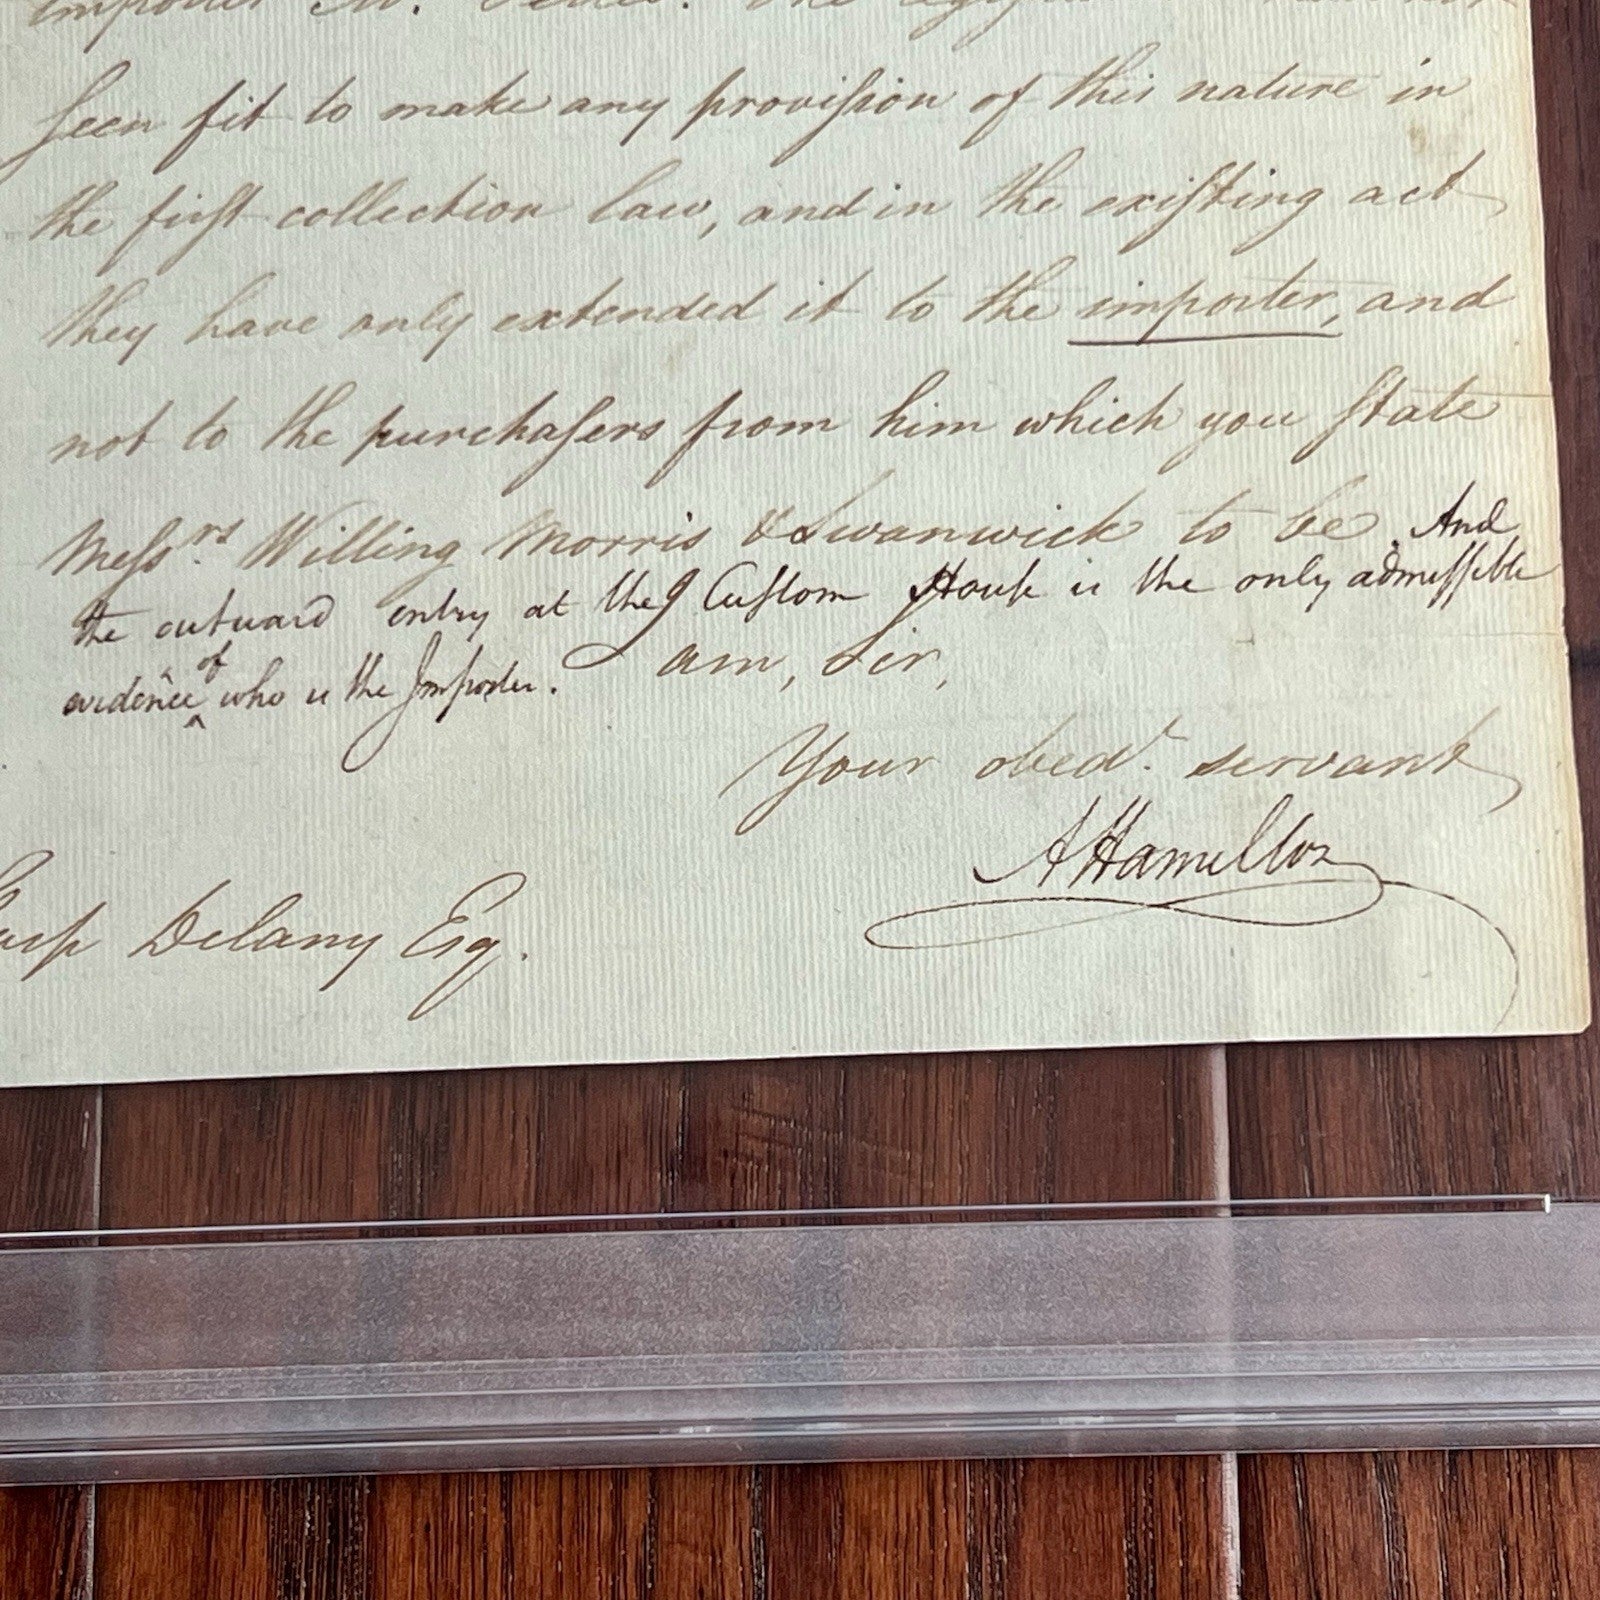 importer
seen fit to make any provision of this nature in
the first collection law, and in the existing act
they have only extended it to the importer, and
not to the purchasers from him which you state
Messrs. Willing Morris & Swanwick to be. And
the outward entry at the Custom House is the only admissible
evidence of who is the Importer.
I am, Sir,
Your obedt. servant
A Hamilton
Delany Esq.